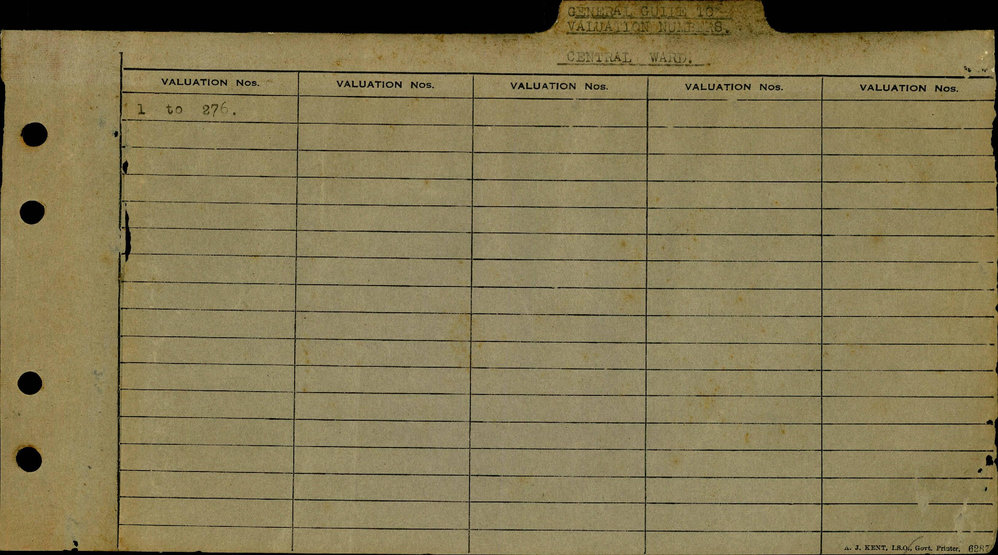 GENERAL GUIDE TO
VALUATION NUMBERS.
CENTRAL WARD.
VALUATION Nos. VALUATION Nos. VALUATION Nos. VALUATION Nos. VALUATION Nos.
1 to 276.
A. J. KENT, I.S.O., Govt. Printer.